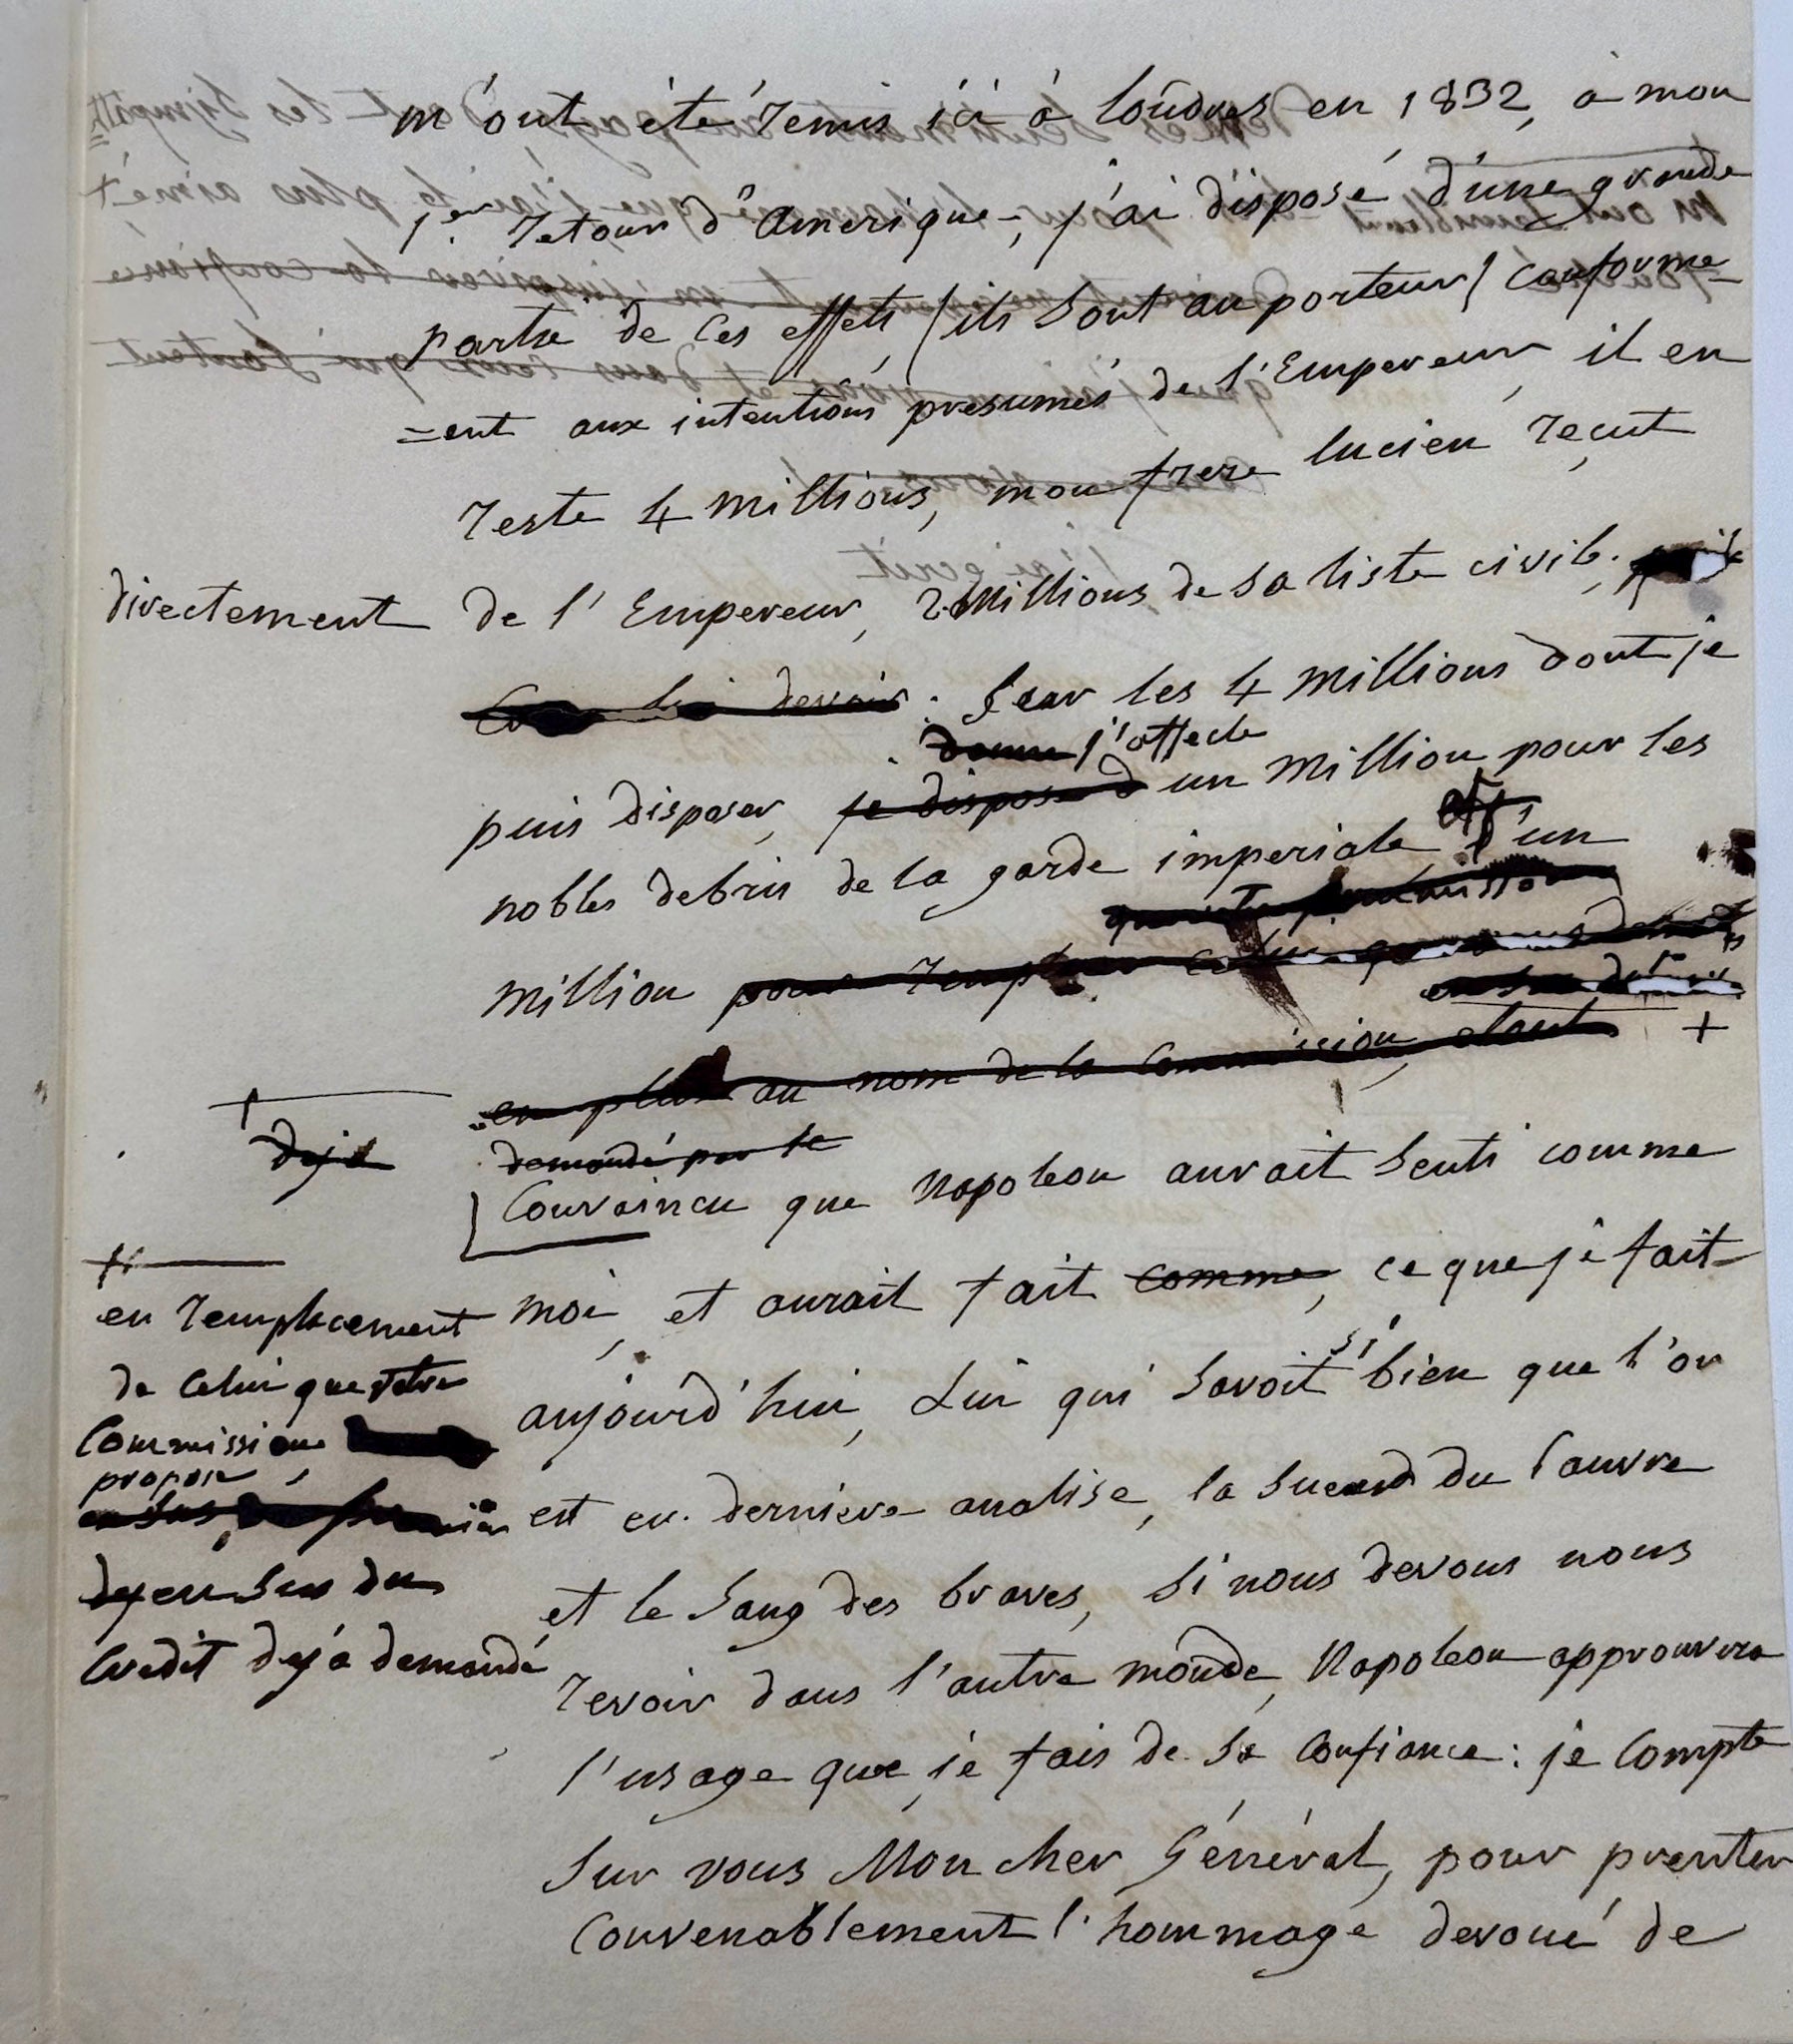 m'ont été remis ici à londres en 1832, à mon
1er. retour d'amerique, j'ai disposé d'une grande
partie de ces effets (ils sont au porteur) conforme-
=ent aux intentions presumés de l'Empereur, il en
reste 4 millions, mon frere lucien reçut
directement de l'Empereur, 2 millions de sa liste civile.
devoir. Sur les 4 millions dont je
donne j'affecte
puis disposer, je dispose d un million pour les
nobles debris de la garde imperiale et d'un
million pour
en plus au nom de la Commission, etant +
deja demandé par le
Convaincu que Napoleon aurait senti comme
moi, et aurait fait comme, ce que je fait
si
aujourd'hui, Lui qui savoit bien que l'or
est en derniere analise, la sueur du Pauvre
et le sang des braves, si nous devons nous
revoir dans l'autre monde, Napoleon approuvera
l'usage que je fais de sa confiance: je compte
sur vous Mon cher Général, pour presenter
convenablement l'hommage devoué de
en remplacement
de celui que votre
Commission
propose,
en sus
en sus du
credit dejà demandé